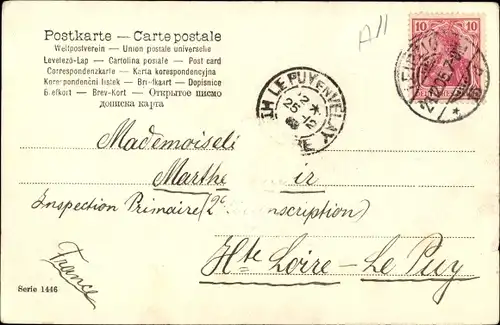 Postkarte — Carte postale
Weltpostverein — Union postale universelle
Levelező-Lap — Cartolina postale — Post card
Correspondenzkarte — Karta korespondencyjna
Korespondenční lístek — Brefkaart — Dopisnice
Brefkort — Brev-Kort — Открытое письмо
дописна карта
A11
10 10
LE PUY-EN-VELAY
12 *
25 - 12
Mademoisell
Marthe ir
Inspection Primaire (2e nscription)
Hte Loire - Le Puy
France
Serie 1446